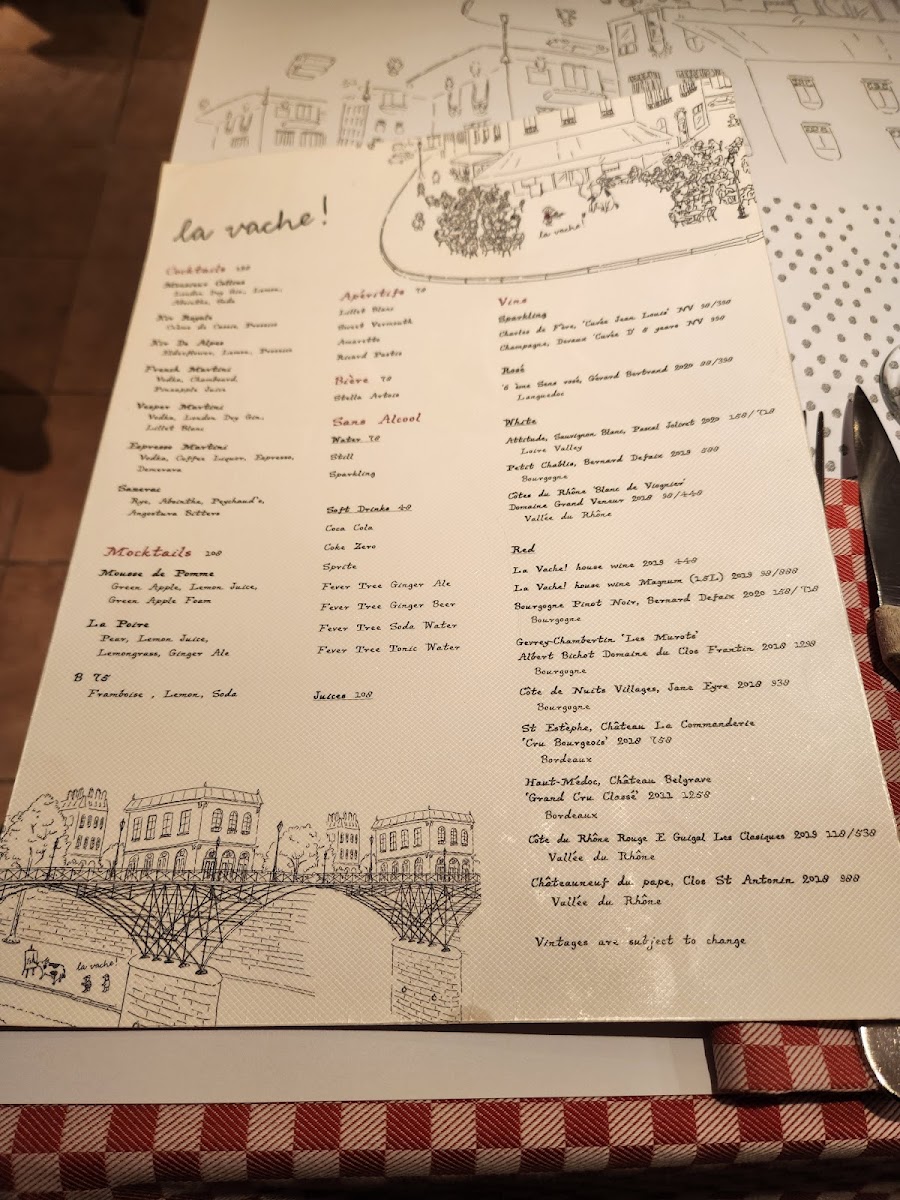 la vache!
la vache!
Cocktails
Monsieur Collins
London Dry Gin, Lemon,
Absinthe, Soda
Kir Royale
Crème de Cassis, Prosecco
Kir De Alpes
Elderflower, Lemon, Prosecco
French Martini
Vodka, Chambord,
Pineapple Juice
Vesper Martini
Vodka, London Dry Gin,
Lillet Blanc
Espresso Martini
Vodka, Coffee Liquor, Espresso,
Demerara
Sazerac
Rye, Absinthe, Peychaud's,
Angostura Bitters
Mocktails 108
Mousse de Pomme
Green Apple, Lemon Juice,
Green Apple Foam
La Poire
Pear, Lemon Juice,
Lemongrass, Ginger Ale
B 75
Framboise , Lemon, Soda
Apéritifs 78
Lillet Blanc
Sweet Vermouth
Amaretto
Ricard Pastis
Bière 78
Stella Artois
Sans Alcool
Water 78
Still
Sparkling
Soft Drinks 48
Coca Cola
Coke Zero
Sprite
Fever Tree Ginger Ale
Fever Tree Ginger Beer
Fever Tree Soda Water
Fever Tree Tonic Water
Juices 108
Vins
Sparkling
Charles de Fère, 'Cuvée Jean Louis' NV
Champagne, Devaux 'Cuvée D' 5 years NV
Rosé
Sens rosé, Gérard Bertrand 2020
Languedoc
White
Attitude, Sauvignon Blanc, Pascal Jolivet 2020 158/718
Loire Valley
Petit Chablis, Bernard Defaix 2019
Bourgogne
Côtes du Rhône 'Blanc de Viognier'
Domaine Grand Veneur 2018 98/448
Vallée du Rhône
Red
La Vache! house wine 2019 448
La Vache! house wine Magnum (1.5L) 2019 98/888
Bourgogne Pinot Noir, Bernard Defaix 2020 158/718
Bourgogne
Gevrey-Chambertin 'Les Murots'
Albert Bichot Domaine du Clos Frantin 2018 1298
Bourgogne
Côte de Nuits Villages, Jane Eyre 2018 938
Bourgogne
St Estèphe, Château La Commanderie
'Cru Bourgeois' 2018 758
Bordeaux
Haut-Médoc, Château Belgrave
'Grand Cru Classé' 2011 1258
Bordeaux
Côte du Rhône Rouge E Guigal Les Clasiques 2019 118/538
Vallée du Rhône
Châteauneuf du pape, Clos St Antonin 2018 988
Vallée du Rhône
Vintages are subject to change
la vache!